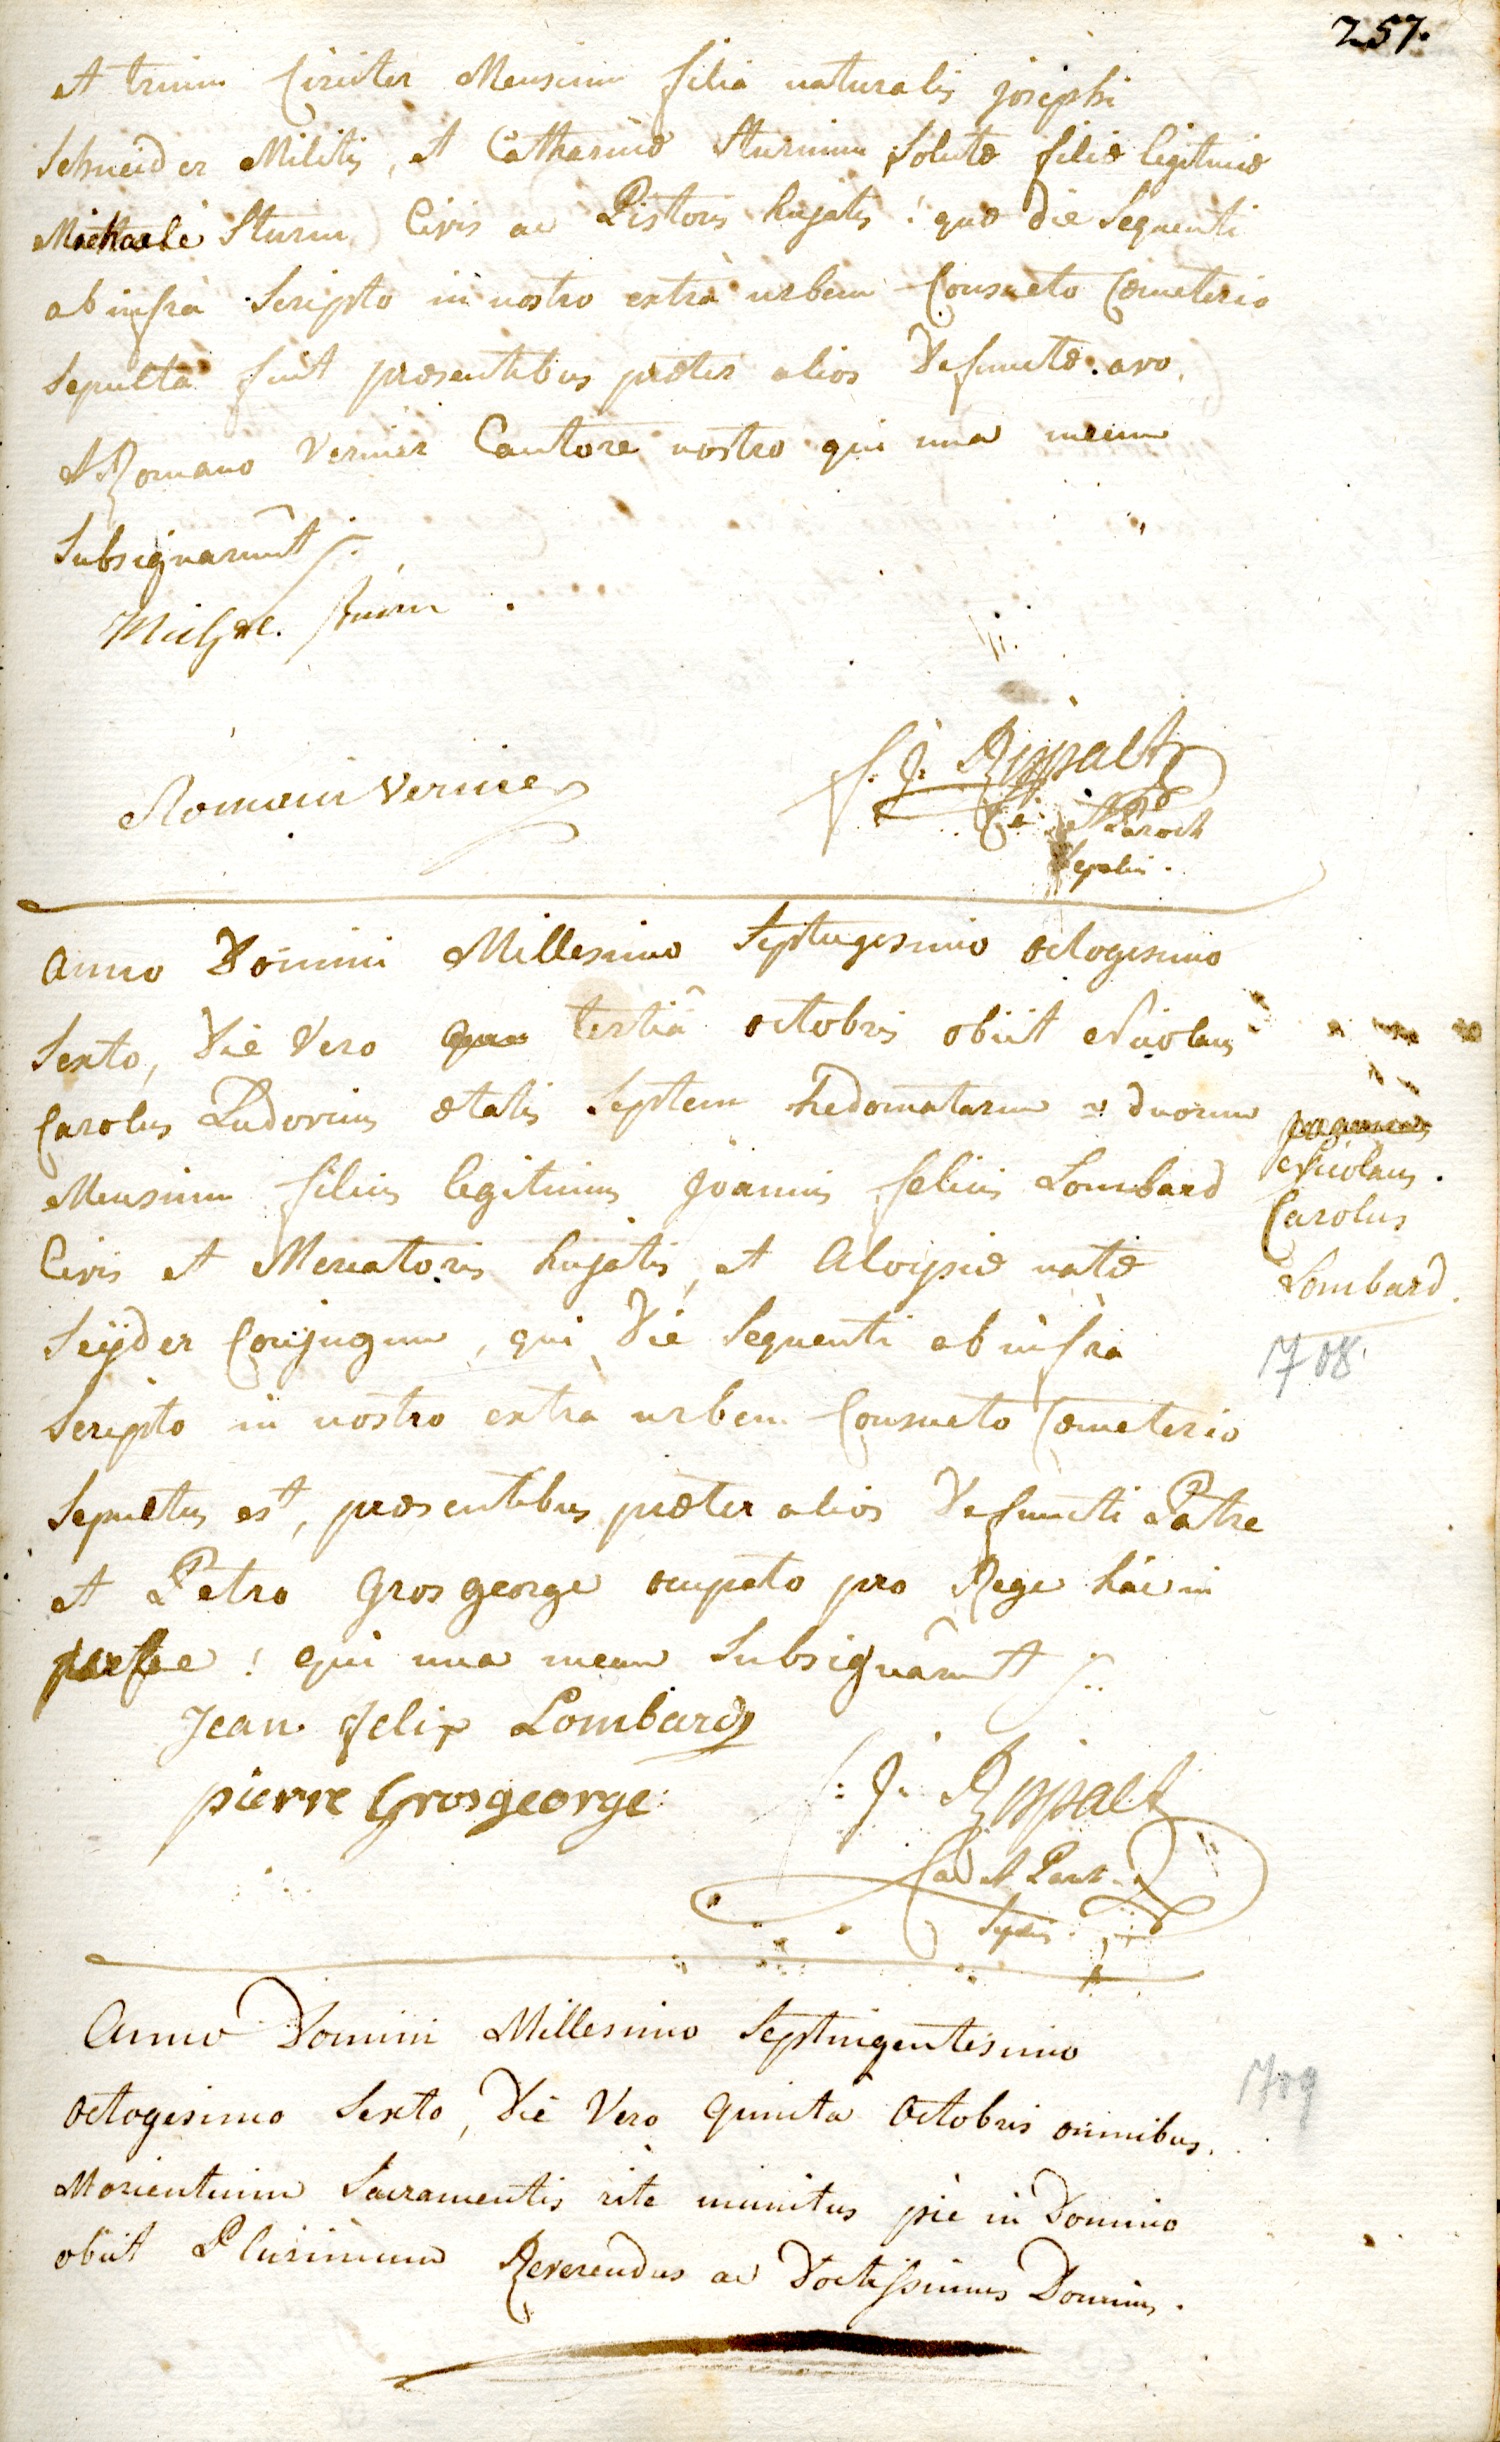 257.
et trium Circiter Mensium filia naturalis josephi
Schneider Militis, et Catharinæ Sturmin Solutæ filiæ legitimæ
Michaele Sturm Civis ac Pistoris hujatis: quæ die Sequenti
ab infrà Scripto in nostro extrà urbem Consueto Cœmeterio
Sepulta fuit præsentibus præter alios Defunctæ avo,
et Romano Vernier Cantore nostro qui unà mecum
Subsignarûnt
Michael Sturm
Romain Vernier
f: J: Rippalt
et Paroch
Anno Domini Millesimo Septugesimo octogesimo
Sexto, Die Vero tertiâ octobris obiit Nicolaus
Carolus Ludovicus ætatis Septem hedomatarum duorum
Mensium filius legitimus Joannis felicis Lombard
Civis et Mercatoris hujatis, et Aloysiæ natæ
Seÿder Conjugum, qui Die Sequenti ab infrà
Scripto in nostro extrà urbem Consueto Cœmeterio
Sepultus est, præsentibus præter alios Defuncti Patre
et Petro Grosgeorge ocupato pro Rege hâc in
: qui unà mecum Subsignârunt
Nicolaus.
Carolus
Lombard.
1708
Jean Felix Lombard
pierre Grosgeorge
f: J: Rippalt
Anno Domini Millesimo Septingentesimo
octogesimo Sexto, Die Vero Quinta Octobris omnibus
Morientium Sacramentis ritè munitus piè in Domino
obiit Plurimum Reverendus ac Doctissimus Dominus.
1709